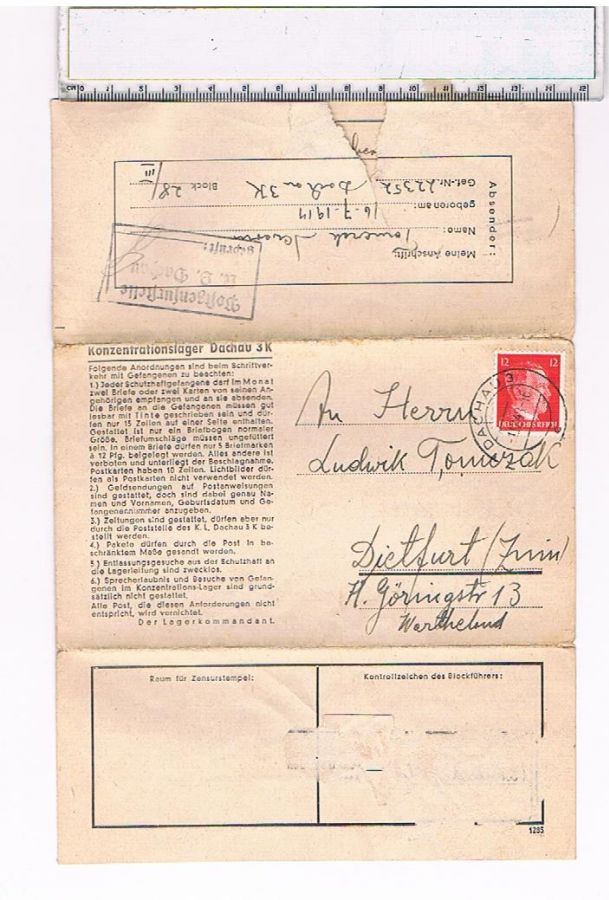 Absender:
Meine Anschrift:
Name: Tomczak
geboren am: 16.7.1914
Gef.-Nr. 22352 Dachau 3K
Block 28/ III
Postzensurstelle
K. L. Dachau
geprüft:
Konzentrationslager Dachau 3 K
Folgende Anordnungen sind beim Schriftver-
kehr mit Gefangenen zu beachten:
1.) Jeder Schutzhaftgefangene darf im Monat
zwei Briefe oder zwei Karten von seinen An-
gehörigen empfangen und an sie absenden.
Die Briefe an die Gefangenen müssen gut
lesbar mit Tinte geschrieben sein und dür-
fen nur 15 Zeilen auf einer Seite enthalten.
Gestattet ist nur ein Briefbogen normaler
Größe. Briefumschläge müssen ungefüttert
sein. In einem Briefe dürfen nur 5 Briefmarken
à 12 Pfg. beigelegt werden. Alles andere ist
verboten und unterliegt der Beschlagnahme.
Postkarten haben 10 Zeilen. Lichtbilder dür-
fen als Postkarten nicht verwendet werden.
2.) Geldsendungen auf Postanweisungen
sind gestattet, doch sind dabei genau Na-
men und Vornamen, Geburtsdatum und Ge-
fangenennummer anzugeben.
3.) Zeitungen sind gestattet, dürfen aber nur
durch die Poststelle des K. L. Dachau 3 K be-
stellt werden.
4.) Pakete dürfen durch die Post in be-
schränktem Maße gesandt werden.
5.) Entlassungsgesuche aus der Schutzhaft an
die Lagerleitung sind zwecklos.
6.) Sprecherlaubnis und Besuche von Gefan-
genen im Konzentrations-Lager sind grund-
sätzlich nicht gestattet.
Alle Post, die diesen Anforderungen nicht
entspricht, wird vernichtet.
Der Lagerkommandant.
12 12
DEUTSCHES REICH
DACHAU 3
An Herrn
Ludwik Tomczak
Dietfurt (Znin)
H. Göringstr 13
Wartheland
Raum für Zensurstempel:
Kontrollzeichen des Blockführers:
1285